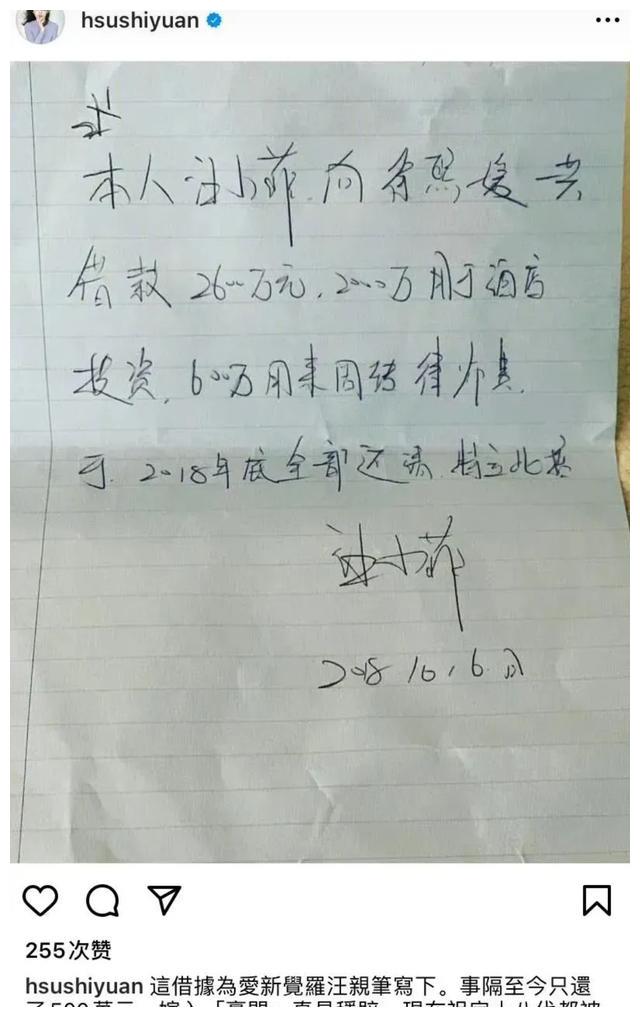 hsushiyuan
本人汪小菲.向徐熙媛共
借款2600万元.2000万用于酒店
投资.600万用来周转律师其
于.2018年底全部还清.特立此基
汪小菲
2018 10,6日
255次赞
hsushiyuan 這借據為愛新覺羅汪親筆寫下。事隔至今只還